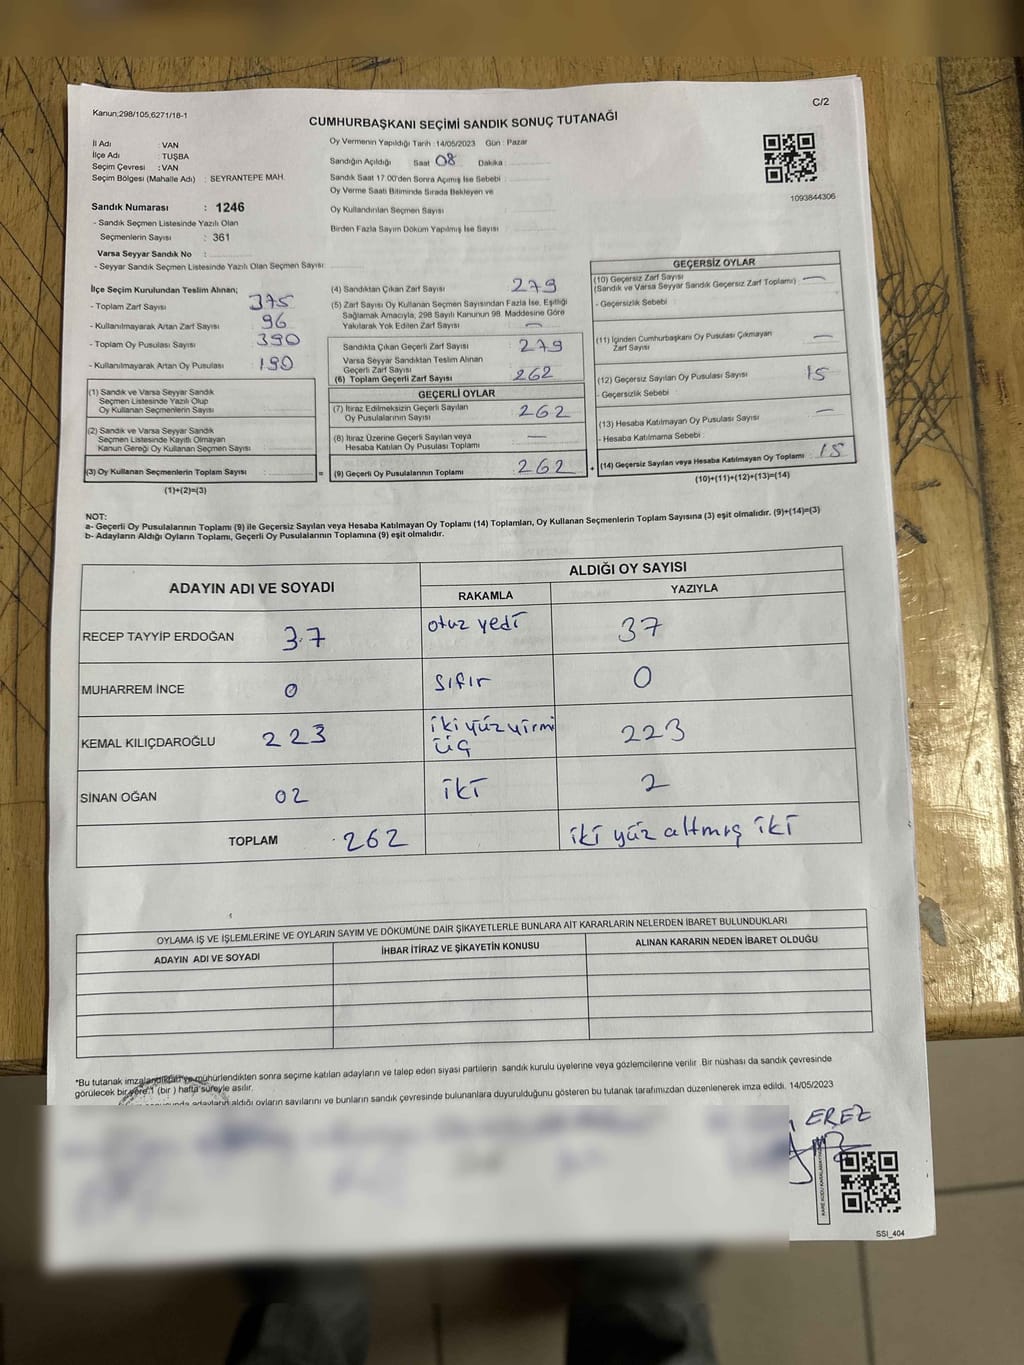 Kanun;298/105,6271/18-1
C/2
CUMHURBAŞKANI SEÇİMİ SANDIK SONUÇ TUTANAĞI
İl Adı : VAN
İlçe Adı : TUŞBA
Seçim Çevresi : VAN
Seçim Bölgesi (Mahalle Adı) : SEYRANTEPE MAH.
Sandık Numarası : 1246
- Sandık Seçmen Listesinde Yazılı Olan
Seçmenlerin Sayısı : 361
Varsa Seyyar Sandık No :
- Seyyar Sandık Seçmen Listesinde Yazılı Olan Seçmen Sayısı:
Oy Vermenin Yapıldığı Tarih : 14/05/2023 Gün : Pazar
Sandığın Açıldığı Saat 08 Dakika :
Sandık Saat 17.00'den Sonra Açımış İse Sebebi :
Oy Verme Saati Bitiminde Sırada Bekleyen ve
Oy Kullandırılan Seçmen Sayısı :
Birden Fazla Sayım Döküm Yapılmış İse Sayısı :
1093844306
İlçe Seçim Kurulundan Teslim Alınan;
- Toplam Zarf Sayısı : 375
- Kullanılmayarak Artan Zarf Sayısı : 96
- Toplam Oy Pusulası Sayısı : 390
- Kullanılmayarak Artan Oy Pusulası : 190
(1) Sandık ve Varsa Seyyar Sandık
Seçmen Listesinde Yazılı Olup
Oy Kullanan Seçmenlerin Sayısı :
(2) Sandık ve Varsa Seyyar Sandık
Seçmen Listesinde Kayıtlı Olmayan
Kanun Gereği Oy Kullanan Seçmen Sayısı :
(3) Oy Kullanan Seçmenlerin Toplam Sayısı :
(1)+(2)=(3)
(4) Sandıktan Çıkan Zarf Sayısı : 279
(5) Zarf Sayısı Oy Kullanan Seçmen Sayısından Fazla İse, Eşitliği
Sağlamak Amacıyla, 298 Sayılı Kanunun 98. Maddesine Göre
Yakılarak Yok Edilen Zarf Sayısı : —
Sandıkta Çıkan Geçerli Zarf Sayısı : 279
Varsa Seyyar Sandıktan Teslim Alınan
Geçerli Zarf Sayısı
(6) Toplam Geçerli Zarf Sayısı : 262
GEÇERLİ OYLAR
(7) İtiraz Edilmeksizin Geçerli Sayılan
Oy Pusulalarının Sayısı : 262
(8) İtiraz Üzerine Geçerli Sayılan veya
Hesaba Katılan Oy Pusulası Toplamı : —
= (9) Geçerli Oy Pusulalarının Toplamı : 262
GEÇERSİZ OYLAR
(10) Geçersiz Zarf Sayısı
(Sandık ve Varsa Seyyar Sandık Geçersiz Zarf Toplamı) : —
- Geçersizlik Sebebi :
(11) İçinden Cumhurbaşkanı Oy Pusulası Çıkmayan
Zarf Sayısı : —
(12) Geçersiz Sayılan Oy Pusulası Sayısı : 15
- Geçersizlik Sebebi :
(13) Hesaba Katılmayan Oy Pusulası Sayısı : —
- Hesaba Katılmama Sebebi :
+ (14) Geçersiz Sayılan veya Hesaba Katılmayan Oy Toplamı : 15
(10)+(11)+(12)+(13)=(14)
NOT:
a- Geçerli Oy Pusulalarının Toplamı (9) ile Geçersiz Sayılan veya Hesaba Katılmayan Oy Toplamı (14) Toplamları, Oy Kullanan Seçmenlerin Toplam Sayısına (3) eşit olmalıdır. (9)+(14)=(3)
b- Adayların Aldığı Oyların Toplamı, Geçerli Oy Pusulalarının Toplamına (9) eşit olmalıdır.
ADAYIN ADI VE SOYADI
ALDIĞI OY SAYISI
RAKAMLA YAZIYLA
RECEP TAYYİP ERDOĞAN 37 otuz yedi 37
MUHARREM İNCE 0 sıfır 0
KEMAL KILIÇDAROĞLU 223 iki yüz yirmi üç 223
SİNAN OĞAN 02 iki 2
TOPLAM 262 iki yüz altmış iki
OYLAMA İŞ VE İŞLEMLERİNE VE OYLARIN SAYIM VE DÖKÜMÜNE DAİR ŞİKAYETLERLE BUNLARA AİT KARARLARIN NELERDEN İBARET BULUNDUKLARI
ADAYIN ADI VE SOYADI İHBAR İTİRAZ VE ŞİKAYETİN KONUSU ALINAN KARARIN NEDEN İBARET OLDUĞU
*Bu tutanak imzalandıktan ve mühürlendikten sonra seçime katılan adayların ve talep eden siyasi partilerin sandık kurulu üyelerine veya gözlemcilerine verilir. Bir nüshası da sandık çevresinde
görülecek bir yere 1 (bir) hafta süreyle asılır.
adayların aldığı oyların sayılarını ve bunların sandık çevresinde bulunanlara duyurulduğunu gösteren bu tutanak tarafımızdan düzenlenerek imza edildi. 14/05/2023
EREZ
SSI_404